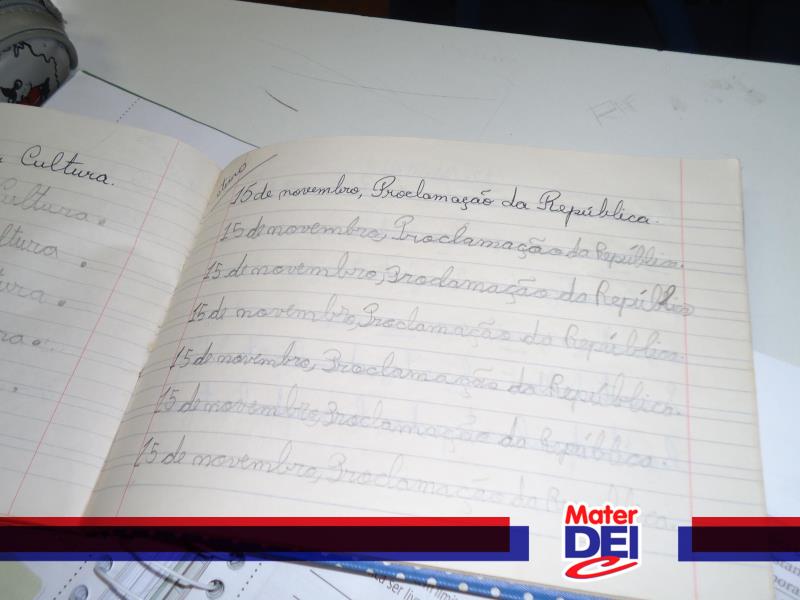 Cultura.
Cultura.
ltura.
tura.
ra.
15 de novembro, Proclamação da República.
15 de novembro, Proclamação da República.
15 de novembro, Proclamação da República
15 de novembro, Proclamação da República.
15 de novembro, Proclamação da República.
15 de novembro, Proclamação da República.
15 de novembro, Proclamação da República.
Mater
DEI